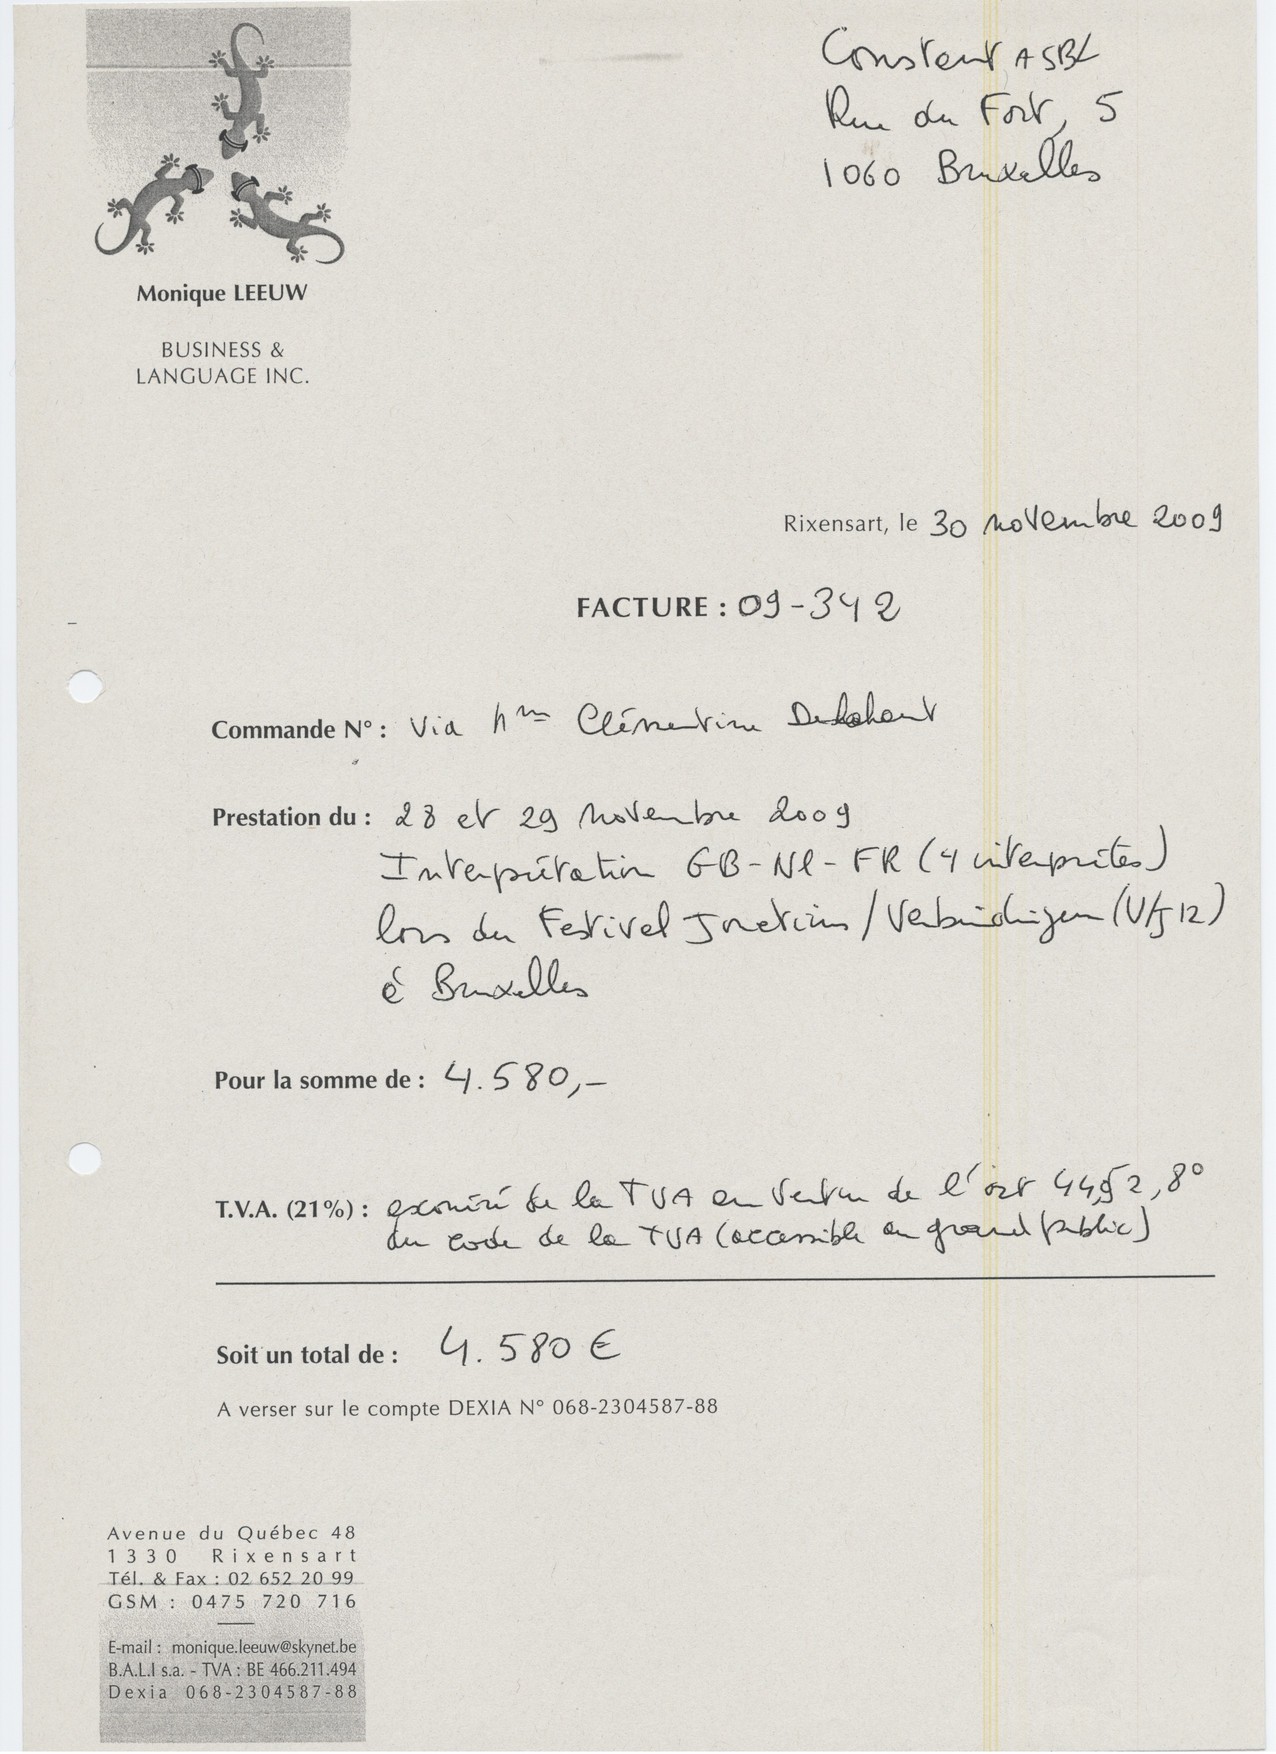 Constant ASBL
Rue du Fort, 5
1060 Bruxelles
Monique LEEUW
BUSINESS &
LANGUAGE INC.
Rixensart, le 30 novembre 2009
FACTURE : 09-342
Commande N° : Via Mme Clémentine Delahaut
Prestation du : 28 et 29 novembre 2009
Interprétation GB-NL-FR (4 interprètes)
lors du Festival Jonctions/Verbindingen (V/J12)
à Bruxelles
Pour la somme de : 4.580,-
T.V.A. (21%) : exonéré de la TVA en vertu de l'art 44§2, 8°
du code de la TVA (accessible au grand public)
Soit un total de : 4.580 €
A verser sur le compte DEXIA N° 068-2304587-88
Avenue du Québec 48
1330 Rixensart
Tél. & Fax : 02 652 20 99
GSM : 0475 720 716
E-mail : monique.leeuw@skynet.be
B.A.L.I s.a. - TVA : BE 466.211.494
Dexia 068-2304587-88